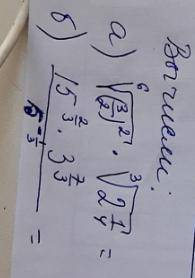 Вычисли:
а) ⁶√(3/2)² · ³√(2 1/4) =
б) (15^(2/3) · 3^(7/3)) / 5^(-1/3) =